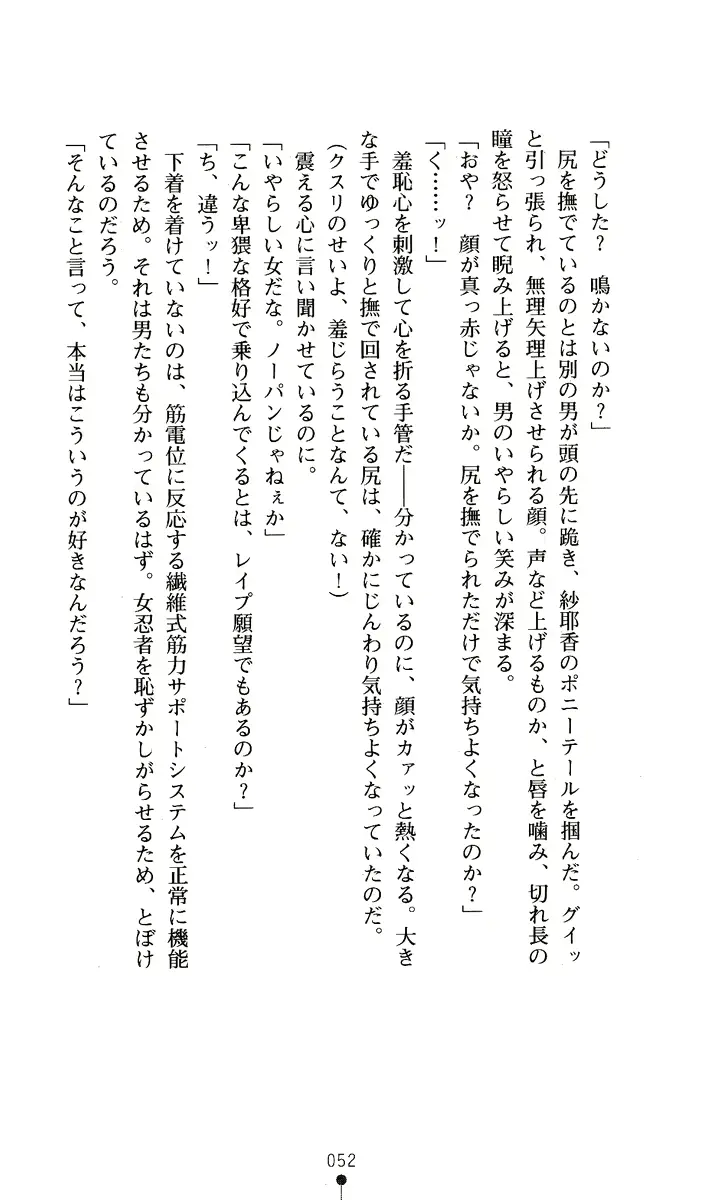 「どうした？　鳴かないのか？」
　尻を撫でているのとは別の男が頭の先に跪き、紗耶香のポニーテールを掴んだ。グイッ
と引っ張られ、無理矢理上げさせられる顔。声など上げるものか、と唇を噛み、切れ長の
瞳を怒らせて睨み上げると、男のいやらしい笑みが深まる。
「おや？　顔が真っ赤じゃないか。尻を撫でられただけで気持ちよくなったのか？」
「く……ッ！」
　羞恥心を刺激して心を折る手管だ――分かっているのに、顔がカァッと熱くなる。大き
な手でゆっくりと撫で回されている尻は、確かにじんわり気持ちよくなっていたのだ。
（クスリのせいよ、羞じらうことなんて、ない！）
　震える心に言い聞かせているのに。
「いやらしい女だな。ノーパンじゃねぇか」
「こんな卑猥な格好で乗り込んでくるとは、レイプ願望でもあるのか？」
「ち、違うッ！」
　下着を着けていないのは、筋電位に反応する繊維式筋力サポートシステムを正常に機能
させるため。それは男たちも分かっているはず。女忍者を恥ずかしがらせるため、とぼけ
ているのだろう。
「そんなこと言って、本当はこういうのが好きなんだろう？」
052